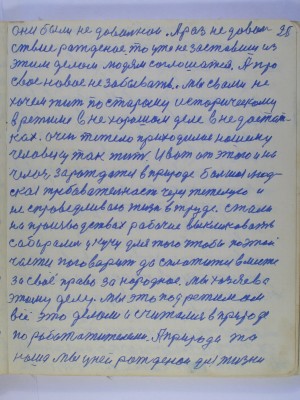 они были не довольное. А раз не доволь 25
ствие рожденое то уже не заставиш из
этим делом людям соглашатся. А про
свое новое не забывать. Мы с вами не
хочем жит по старому историческому
в режиме в не хорошем деле в не достат-
ках. очен тяжело приходилос нашему
человеку так жить. И вот от этого и на
чалос зарождатся в природе большая люд-
ская требовательност чуж тяжелую и
не справедливаю жизн в труде. стали
на производствах рабочие выкликоват
собиралис у кучу для того чтобы по этой
части поговорит да сплотится вместе
за своё право за народное. мы хозяева
этому делу. мы это подретимом
всё это делали и считались в природе
по работательному. А природа то
наша мы у ней рожденои для жизни